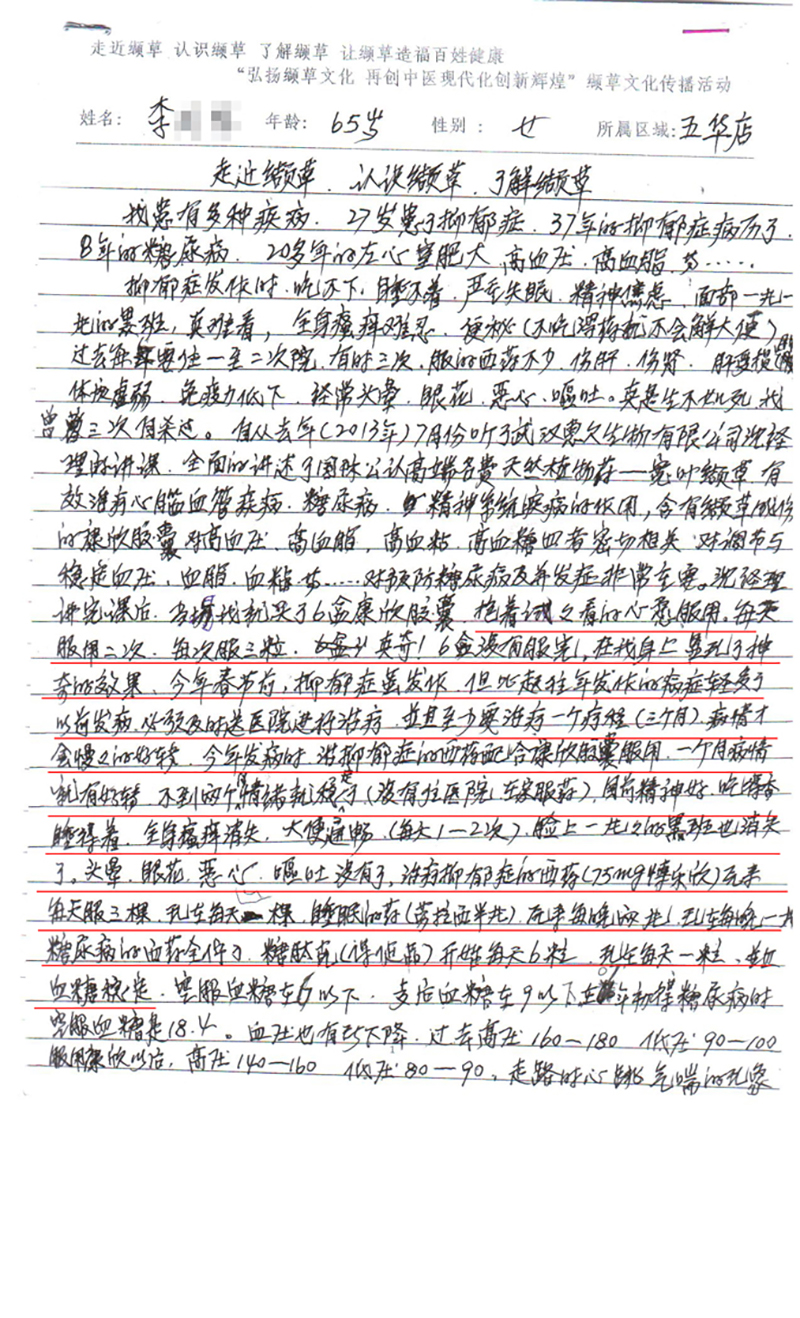 走近缬草 认识缬草 了解缬草 让缬草造福百姓健康
“弘扬缬草文化 再创中医现代化创新辉煌”缬草文化传播活动
姓名：李 年龄：65岁 性别：女 所属区域：五华店
走近缬草．认识缬草．了解缬草
我患有多种疾病．27岁患了抑郁症．37年的抑郁症病历了．
8年的糖尿病．20多年的左心室肥大．高血压．高血脂．等……
抑郁症发作时．吃不下．睡不着．严重失眠．精神焦虑．面部一北一
北的黑班，真难看，全身瘙痒难忍．便秘（不吃泻药就不会解大便）
过去每年要住一至二次院．有时三次．服的西药不少．伤肝．伤肾．肝受损
体块虚弱．免疫力低下．经常头晕．眼花．恶心．呕吐。真是生不如死，我
曾三次自杀过。自从去年（2013年）7月份听了武汉惠久生物有限公司沈经
理的讲课．全面的讲述了国际公认高端名贵天然植物药一宽叶缬草．有
效治疗心脑血管疾病．糖尿病．精神系统疾病的作用，含有缬草成份
的康欣胶囊对高血压．高血脂，高血粘．高血糖四者密切相关．对调节与
稳定血压．血脂．血粘等……对预防糖尿病及并发症非常重要。沈经理
讲完课后．当场我就买了6盒康欣胶囊．抱着试又看的心态服用。每天
服用二次．每次服三粒．真奇！6盒没有服完，在我身上显现了神
奇的效果．今年春节前，抑郁症虽发作．但比起往年发作的病症轻多了
以前发病．必须及时送医院进行治疗．並且至少要治疗一个疗程（三个月）．病情才
会慢又的好转．今年发病时．治抑郁症的西药配合康欣胶囊服用．一个月病情
就有好转．不到两个月情绪就稳定了（没有住医院，在家服药）．目前精神好．吃得香
睡得着．全身瘙痒消失．大便通畅（每天1－2次）．脸上一北又的黑班也消失
了。头晕．眼花．恶心．呕吐没有了，治疗抑郁症的西药（75mg博乐欣）瓦来
每天服三棵．现在每天一棵．睡眠的药（劳拉西半北）．瓦来每晚两北，现在每晚一北
糖尿病的西药全停了．糖肽克（得促品）开始每天6粒．现在每天一粒．並且
血糖稳定．空服血糖在6以下．支后血糖在9以下．在年初得糖尿病时
空服血糖是18.4。血压也有所下降．过去高压160－180 低压90－100
服用康欣以后，高压140－160 低压80－90，走路时心跳气喘的现象